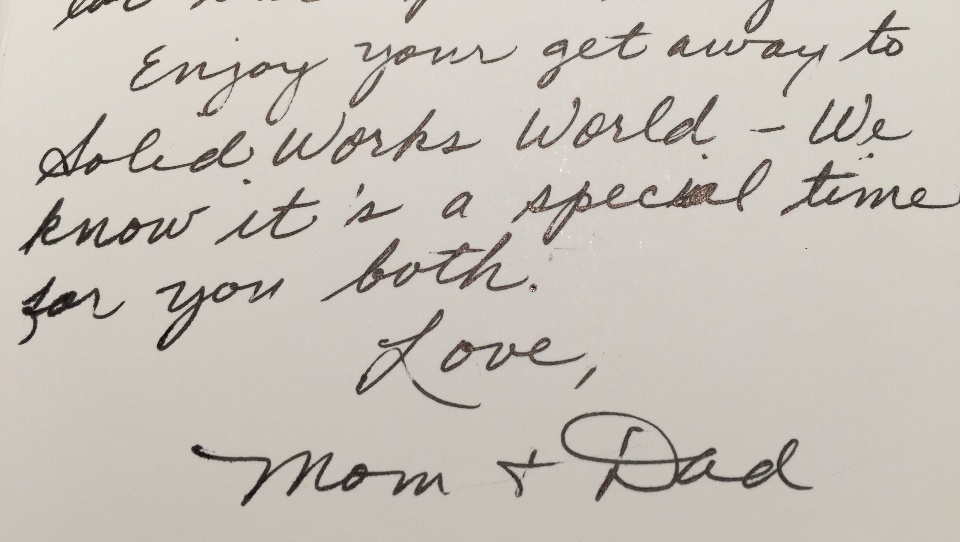 Enjoy your get away to
Solid Works World - We
know it's a special time
for you both.
Love,
Mom + Dad